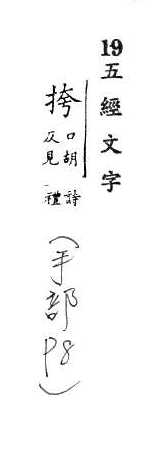 19 五經文字
挎 口胡反見 詩禮
(手部P8)